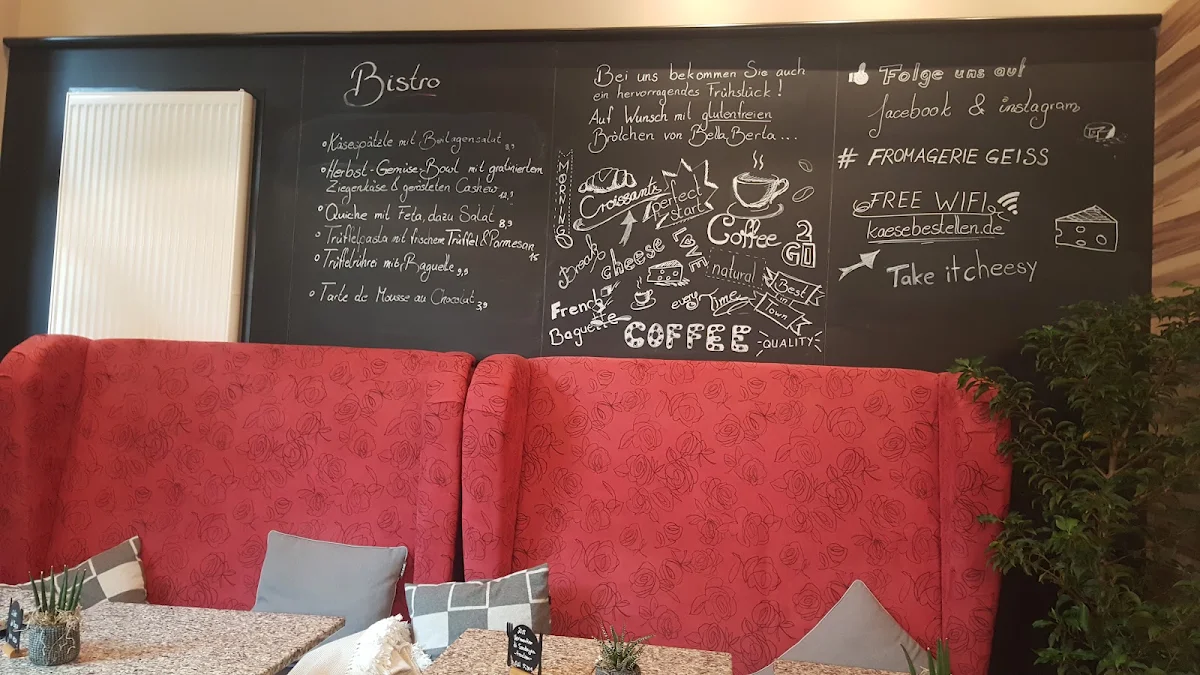 Bistro
Käsespätzle mit Beilagensalat
Herbst-Gemüse-Bowl mit gratiniertem
Ziegenkäse & gerösteten Cashew
Quiche mit Feta, dazu Salat 8,9
Trüffelpasta mit frischem Trüffel & Parmesan
15
Trüffelrührei mit Baguette 9,9
Tarte de Mousse au Chocolat 3,9
Bei uns bekommen Sie auch
ein hervorragendes Frühstück!
Auf Wunsch mit glutenfreien
Brötchen von Bella Berta...
MORNING
Croissants
perfect
start
Coffee
2
GO
Break
cheese
LOVE
natural
Best
in
Town
every Time
French
Baguette
COFFEE
QUALITY
Folge uns auf
facebook & instagram
# FROMAGERIE GEISS
FREE WIFI
kaesebestellen.de
Take it cheesy